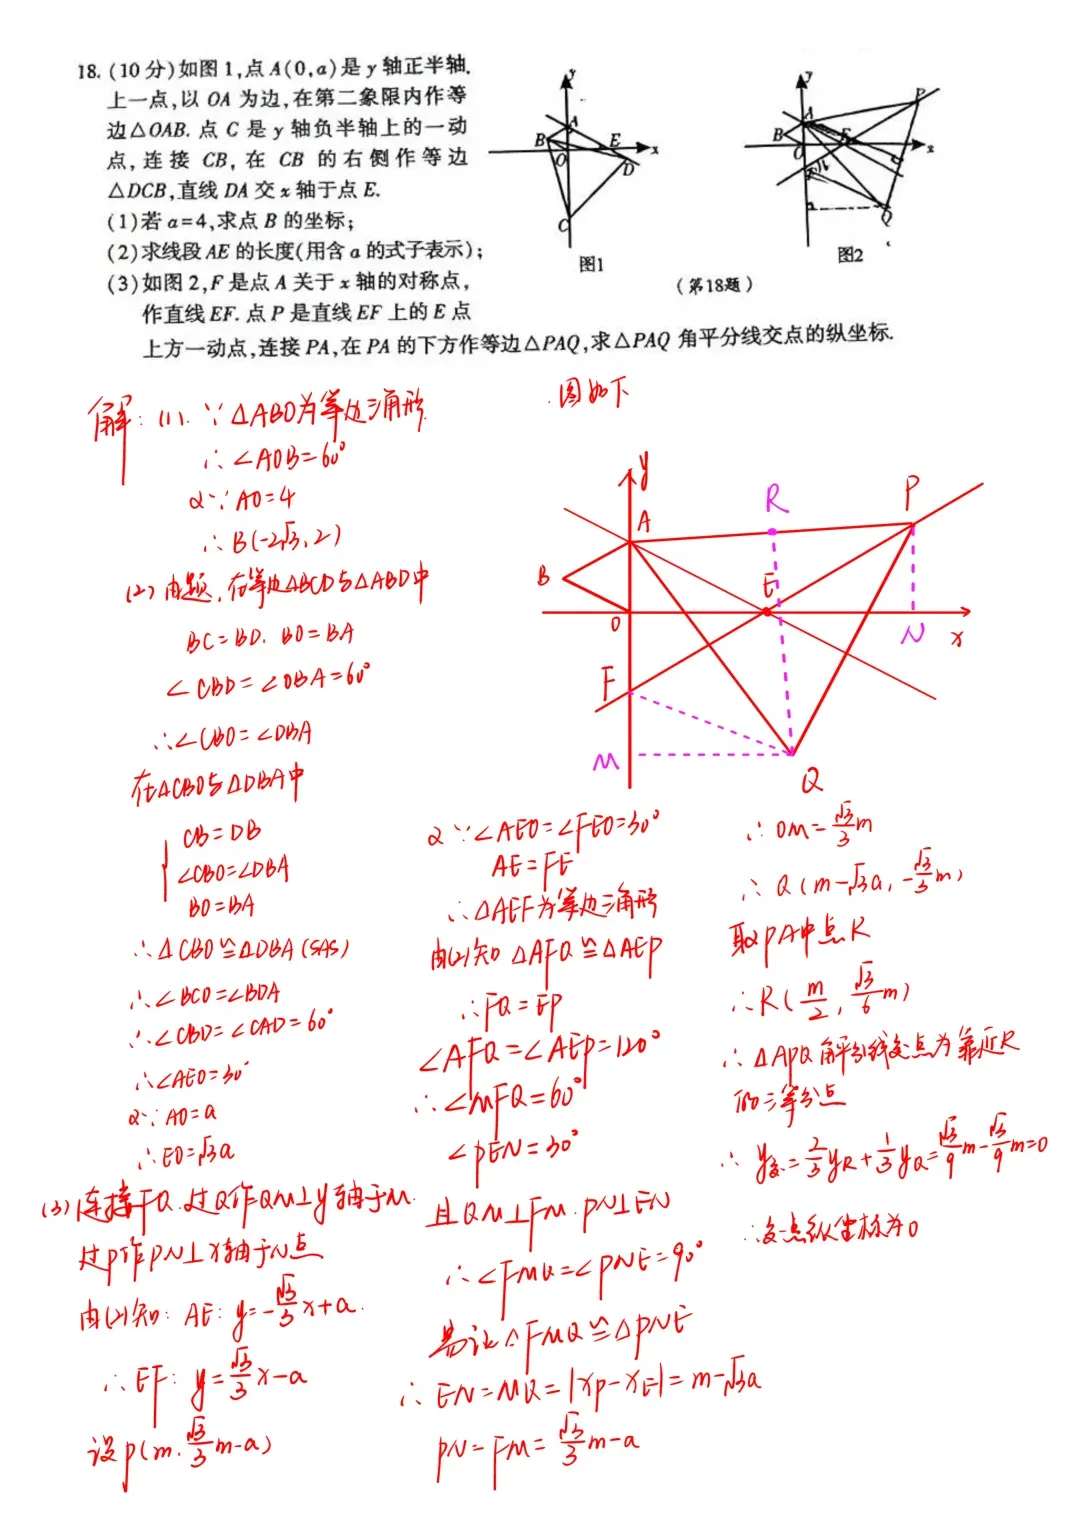 18. (10分)如图1,点A(0,a)是y轴正半轴
上一点,以OA为边,在第二象限内作等
边△OAB. 点C是y轴负半轴上的一动
点,连接CB,在CB的右侧作等边
△DCB,直线DA交x轴于点E.
(1)若a=4,求点B的坐标;
(2)求线段AE的长度(用含a的式子表示);
(3)如图2,F是点A关于x轴的对称点,
作直线EF. 点P是直线EF上的E点
上方一动点,连接PA,在PA的下方作等边△PAQ,求△PAQ角平分线交点的纵坐标.
y
A
B
E
x
O
D
C
图1
y
P
A
B
E
O
x
Q
图2
(第18题)
解: (1). ∵△ABO为等边三角形
∴∠AOB=60°
又∵AO=4
∴B(-2√3,2)
(2)由题,在等边△BCD与△ABO中
BC=BD. BO=BA
∠CBD=∠OBA=60°
∴∠CBO=∠DBA
在△CBO与△DBA中
CB=DB
∠CBO=∠DBA
BO=BA
∴△CBO≌△DBA(SAS)
∴∠BCO=∠BDA
∴∠CBD=∠CAD=60°
∴∠AEO=30°
又∵AO=a
∴EO=√3a
(3)连接FQ.过Q作QM⊥y轴于M.
过P作PN⊥x轴于N点
由(2)知: AE: y=-√3/3x+a.
∴EF: y=√3/3x-a
设P(m.√3/3m-a)
图如下
y
R
P
A
B
E
O
N
x
F
M
Q
又∵∠AEO=∠FEO=30°
AE=FE
∴△AEF为等边三角形
由(2)知△AFQ≌△AEP
∴FQ=EP
∠AFQ=∠AEP=120°
∴∠MFQ=60°
∠PEN=30°
且QM⊥FM.PN⊥EN
∴∠FMQ=∠PNE=90°
易证△FMQ≌△PNE
∴EN=MQ=|xP-xE|=m-√3a
PN=FM=√3/3m-a
∴OM=√3/3m
∴Q(m-√3a,-√3/3m)
取PA中点R
∴R(m/2,√3/6m)
∴△APQ角平分线交点为靠近R
的三等分点
∴y交=2/3yR+1/3yQ=√3/9m-√3/9m=0
∴交点纵坐标为0